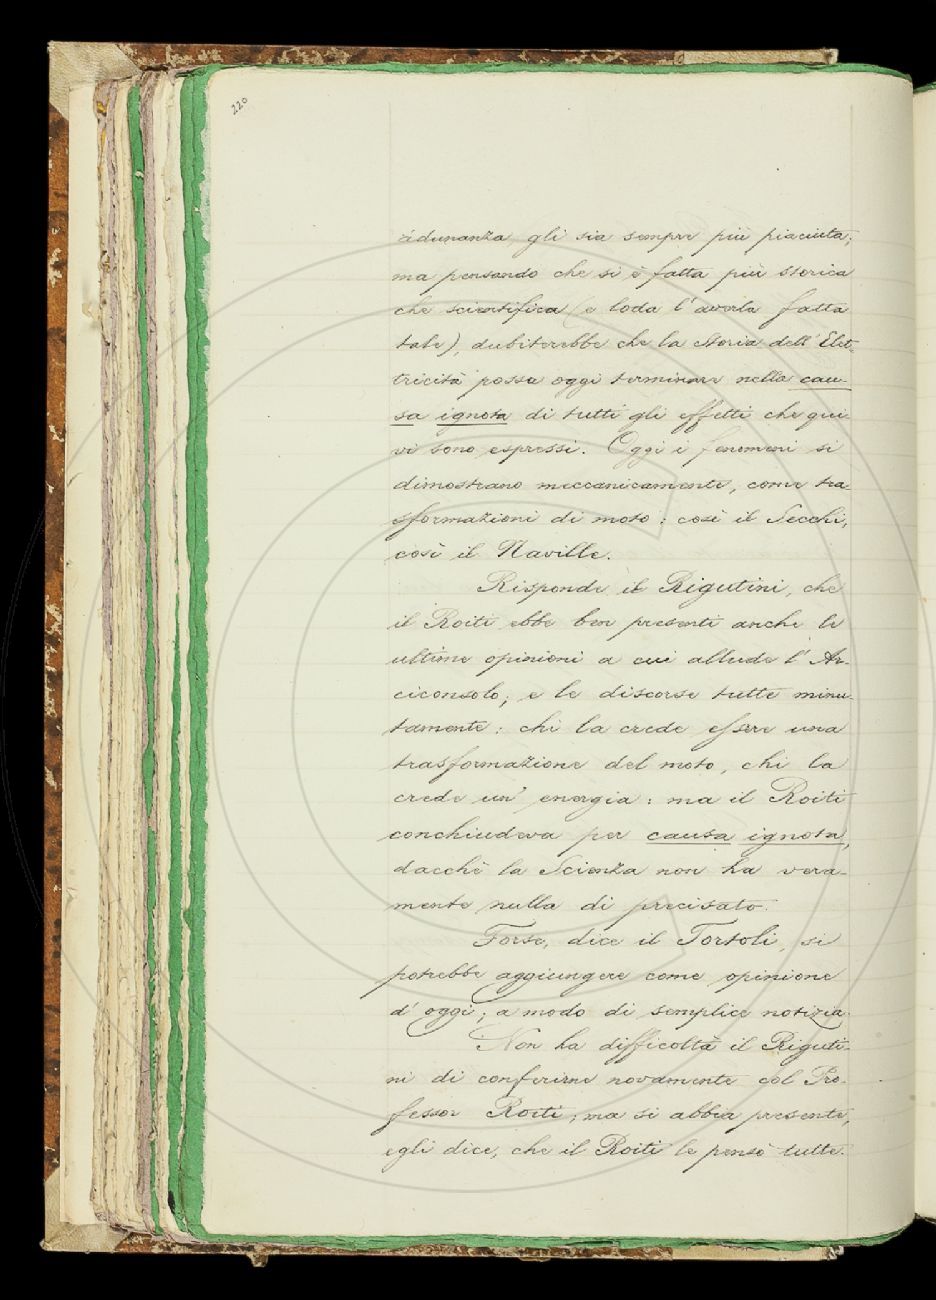 220
adunanza, gli sia sempre più piaciuta;
ma pensando che si è fatta più storica
che scientifica (e loda l'averla fatta
tale), dubiterebbe che la storia dell'Elet-
tricità possa oggi terminare nella cau-
sa ignota di tutti gli effetti che qui-
vi sono espressi. Oggi i fenomeni si
dimostrano meccanicamente, come tra-
sformazioni di moto: così il Secchi,
così il Naville.
Risponde il Rigutini, che
il Roiti ebbe ben presenti anche le
ultime opinioni a cui allude l'Ar-
ciconsolo; e le discorse tutte minu-
tamente: chi la crede essere una
trasformazione del moto, chi la
crede un' energia: ma il Roiti
conchiudeva per causa ignota,
dacchè la Scienza non ha vera-
mente nulla di precisato.
Forse, dice il Tortoli, si
potrebbe aggiungere come opinione
d'oggi; a modo di semplice notizia.
Non ha difficoltà il Riguti-
ni di conferirne novamente col Pro-
fessor Roiti; ma si abbia presente,
egli dice, che il Roiti le pensò tutte.